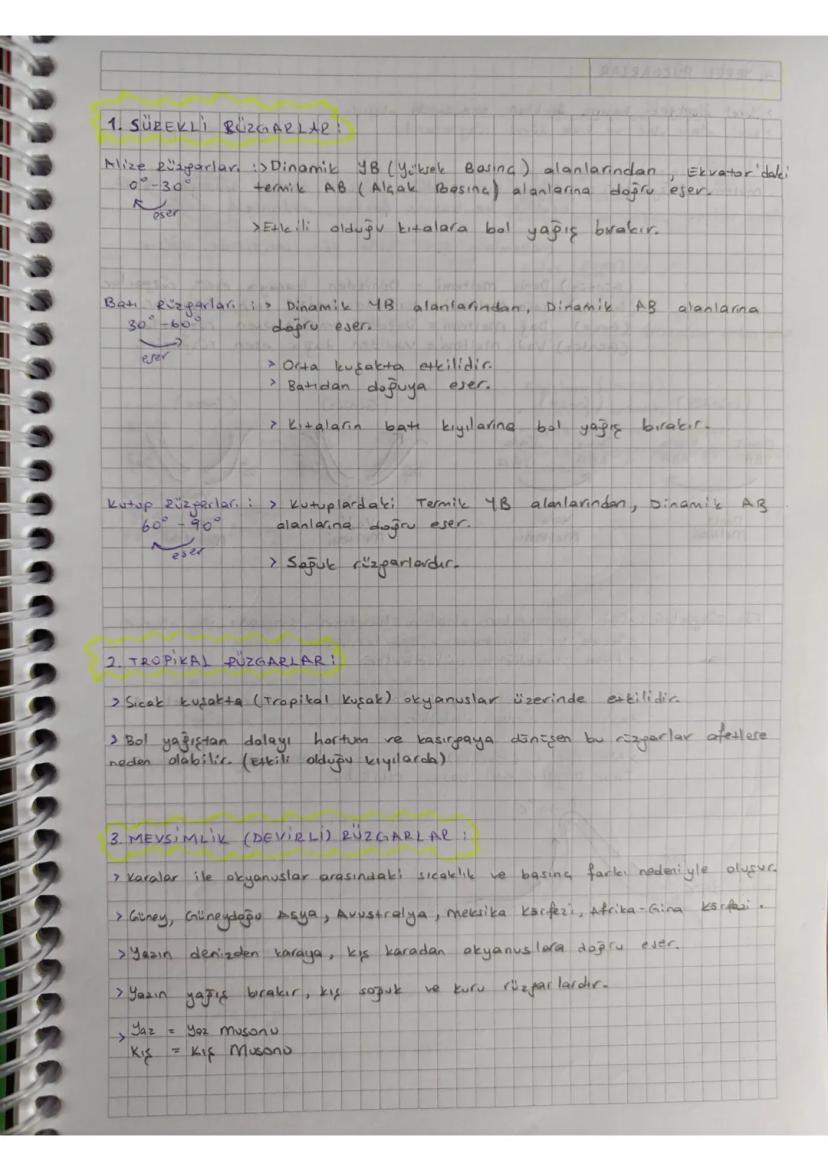 1. SÜREKLİ RÜZGARLAR:
Alize Rüzgarları :> Dinamik YB (Yüksek Basınç) alanlarından, Ekvator'daki
0° - 30° termik AB (Alçak Basınç) alanlarına doğru eser.
eser
> Etkili olduğu kıtalara bol yağış bırakır.
Batı Rüzgarları :> Dinamik YB alanlarından, Dinamik AB alanlarına
30° - 60° doğru eser.
eser
> Orta kuşakta etkilidir.
> Batıdan doğuya eser.
> Kıtaların batı kıyılarına bol yağış bırakır.
Kutup Rüzgarları : > Kutuplardaki Termik YB alanlarından, Dinamik AB
60° - 90° alanlarına doğru eser.
eser
> Soğuk rüzgarlardır.
2. TROPİKAL RÜZGARLAR:
> Sıcak kuşakta (Tropikal Kuşak) okyanuslar üzerinde etkilidir.
> Bol yağıştan dolayı hortum ve kasırgaya dönüşen bu rüzgarlar afetlere
neden olabilir. (Etkili olduğu kıyılarda)
3. MEVSİMLİK (DEVİRLİ) RÜZGARLAR:
> Karalar ile okyanuslar arasındaki sıcaklık ve basınç farkı nedeniyle oluşur.
> Güney, Güneydoğu Asya, Avustralya, Meksika Körfezi, Afrika-Gina Körfezi.
> Yazın denizden karaya, kış karadan okyanuslara doğru eser.
> Yazın yağış bırakır, kış soğuk ve kuru rüzgarlardır.
> Yaz = Yaz Musonu
Kış = Kış Musonu